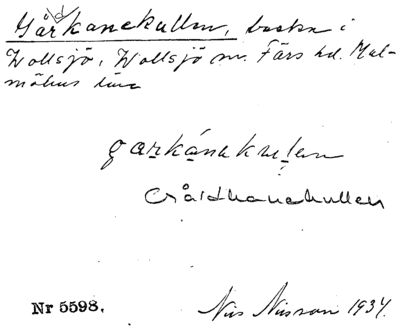 Gårkanekullen, backe i
Wollsjö, Wollsjö sn. Färs hd. Mal-
möhus län
garkánekuļen
Gårdkanekullen
Nr 5598.
Nils Nilsson 1934.